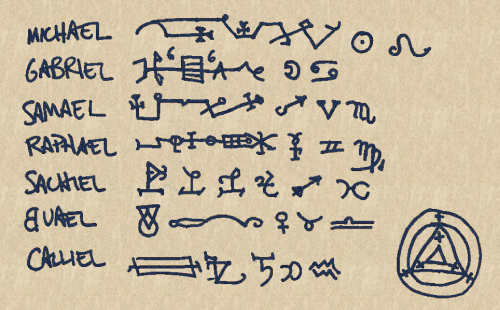 MICHAEL
GABRIEL
SAMAEL
RAPHAEL
SACHIEL
CALLIEL